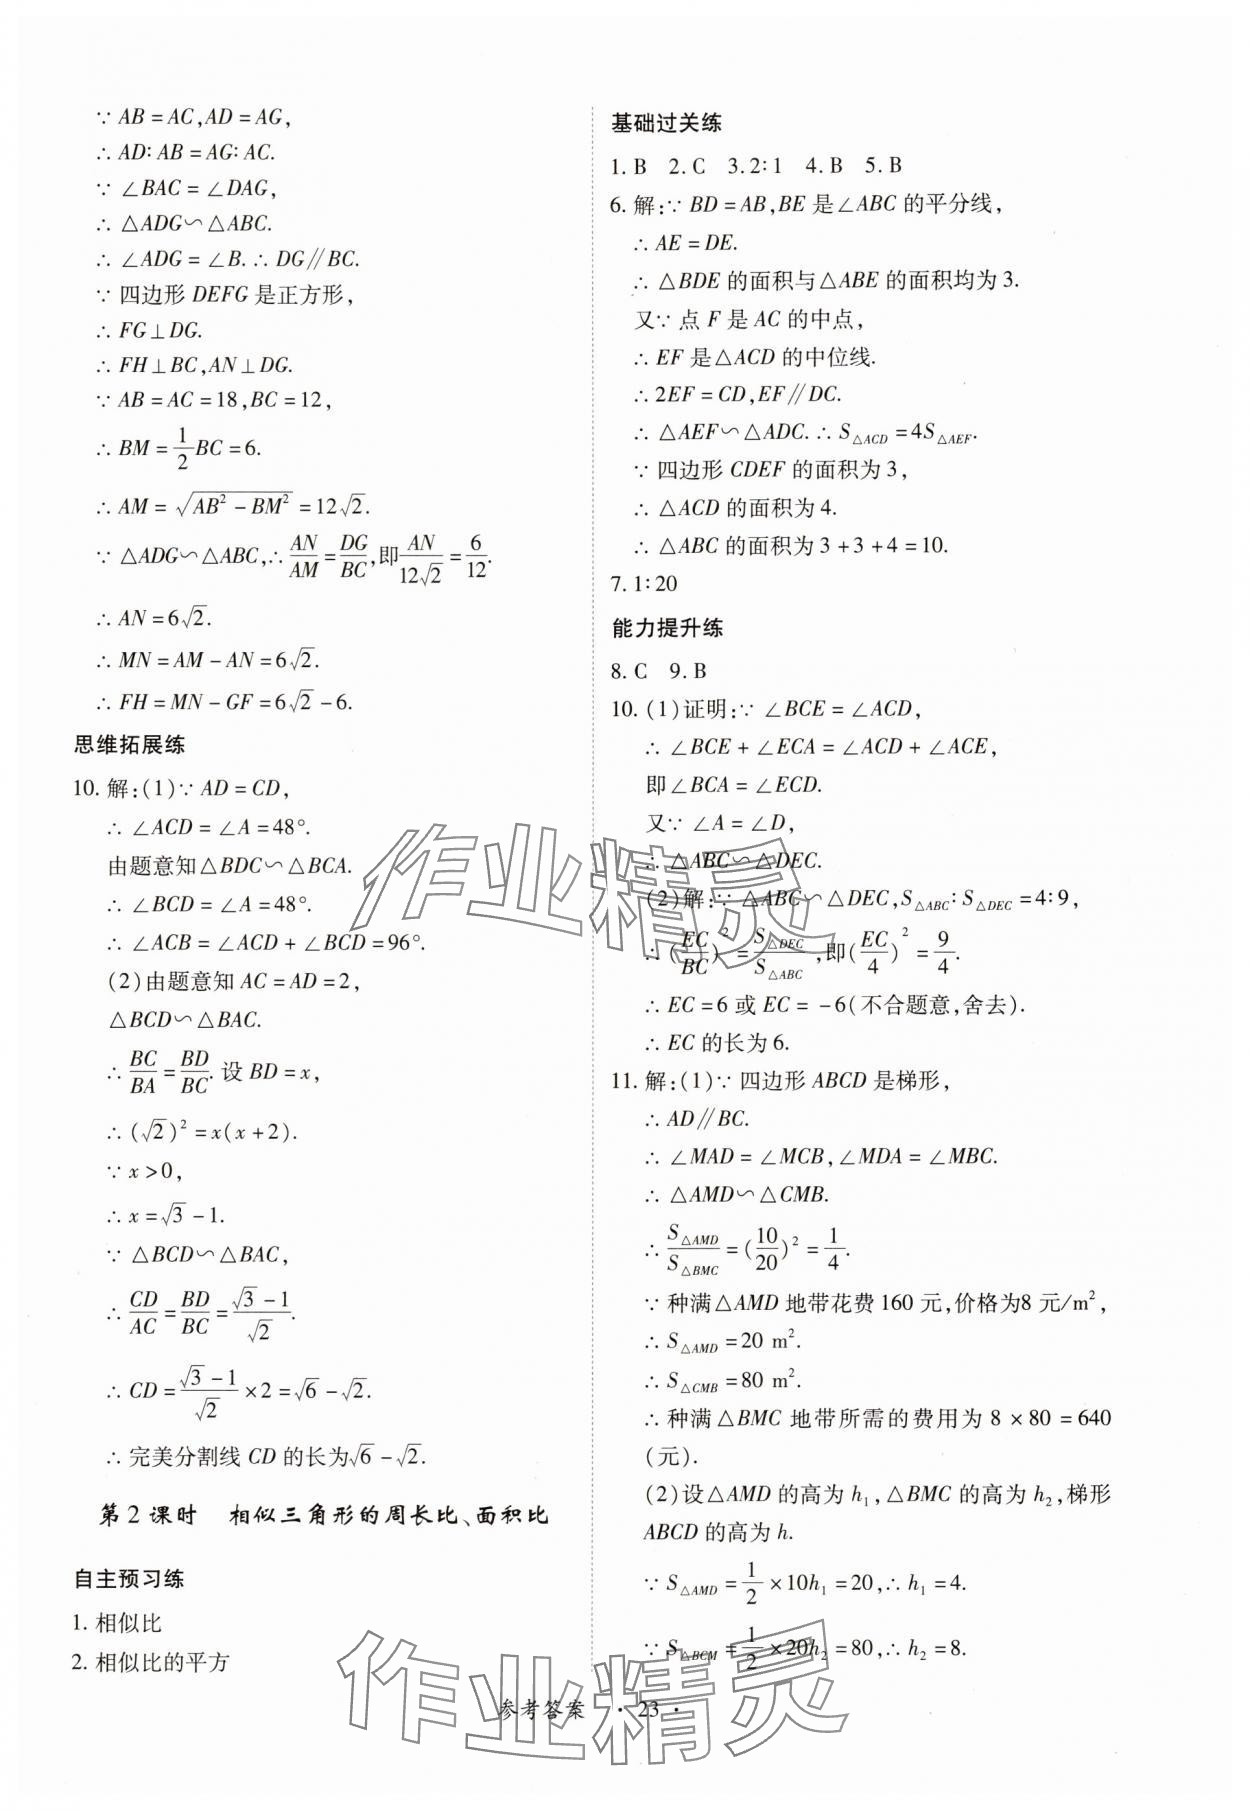 ∵ AB=AC,AD=AG,
∴ AD∶AB=AG∶AC.
∵ ∠BAC=∠DAG,
∴ △ADG∽△ABC.
∴ ∠ADG=∠B.∴ DG∥BC.
∵ 四边形 DEFG 是正方形,
∴ FG⊥DG.
∴ FH⊥BC,AN⊥DG.
∵ AB=AC=18,BC=12,
∴ BM=1/2 BC=6.
∴ AM=√(AB²-BM²)=12√2.
∵ △ADG∽△ABC,∴ AN/AM=DG/BC,即 AN/12√2=6/12.
∴ AN=6√2.
∴ MN=AM-AN=6√2.
∴ FH=MN-GF=6√2-6.
思维拓展练
10. 解:(1)∵ AD=CD,
∴ ∠ACD=∠A=48°.
由题意知△BDC∽△BCA.
∴ ∠BCD=∠A=48°.
∴ ∠ACB=∠ACD+∠BCD=96°.
(2)由题意知 AC=AD=2,
△BCD∽△BAC.
∴ BC/BA=BD/BC.设 BD=x,
∴ (√2)²=x(x+2).
∵ x>0,
∴ x=√3-1.
∵ △BCD∽△BAC,
∴ CD/AC=BD/BC=(√3-1)/√2.
∴ CD=(√3-1)/√2×2=√6-√2.
∴ 完美分割线 CD 的长为√6-√2.
第 2 课时 相似三角形的周长比、面积比
自主预习练
1. 相似比
2. 相似比的平方
基础过关练
1. B 2. C 3. 2∶1 4. B 5. B
6. 解:∵ BD=AB,BE 是∠ABC 的平分线,
∴ AE=DE.
∴ △BDE 的面积与△ABE 的面积均为 3.
又∵ 点 F 是 AC 的中点,
∴ EF 是△ACD 的中位线.
∴ 2EF=CD,EF∥DC.
∴ △AEF∽△ADC.∴ S△ACD=4S△AEF.
∵ 四边形 CDEF 的面积为 3,
∴ △ACD 的面积为 4.
∴ △ABC 的面积为 3+3+4=10.
7. 1∶20
能力提升练
8. C 9. B
10. (1)证明:∵ ∠BCE=∠ACD,
∴ ∠BCE+∠ECA=∠ACD+∠ACE,
即∠BCA=∠ECD.
又∵ ∠A=∠D,
∴ △ABC∽△DEC.
(2)解:∵ △ABC∽△DEC,S△ABC∶S△DEC=4∶9,
∴ (EC/BC)²=S△DEC/S△ABC,即(EC/4)²=9/4.
∴ EC=6 或 EC=-6(不合题意,舍去).
∴ EC 的长为 6.
11. 解:(1)∵ 四边形 ABCD 是梯形,
∴ AD∥BC.
∴ ∠MAD=∠MCB,∠MDA=∠MBC.
∴ △AMD∽△CMB.
∴ S△AMD/S△BMC=(10/20)²=1/4.
∵ 种满△AMD 地带花费 160 元,价格为8 元/m²,
∴ S△AMD=20 m².
∴ S△CMB=80 m².
∴ 种满△BMC 地带所需的费用为 8×80=640
(元).
(2)设△AMD 的高为 h₁,△BMC 的高为 h₂,梯形
ABCD 的高为 h.
∵ S△AMD=1/2×10h₁=20,∴ h₁=4.
∵ S△BCM=1/2×20h₂=80,∴ h₂=8.
参考答案 · 23 ·
作业精灵
作业精灵